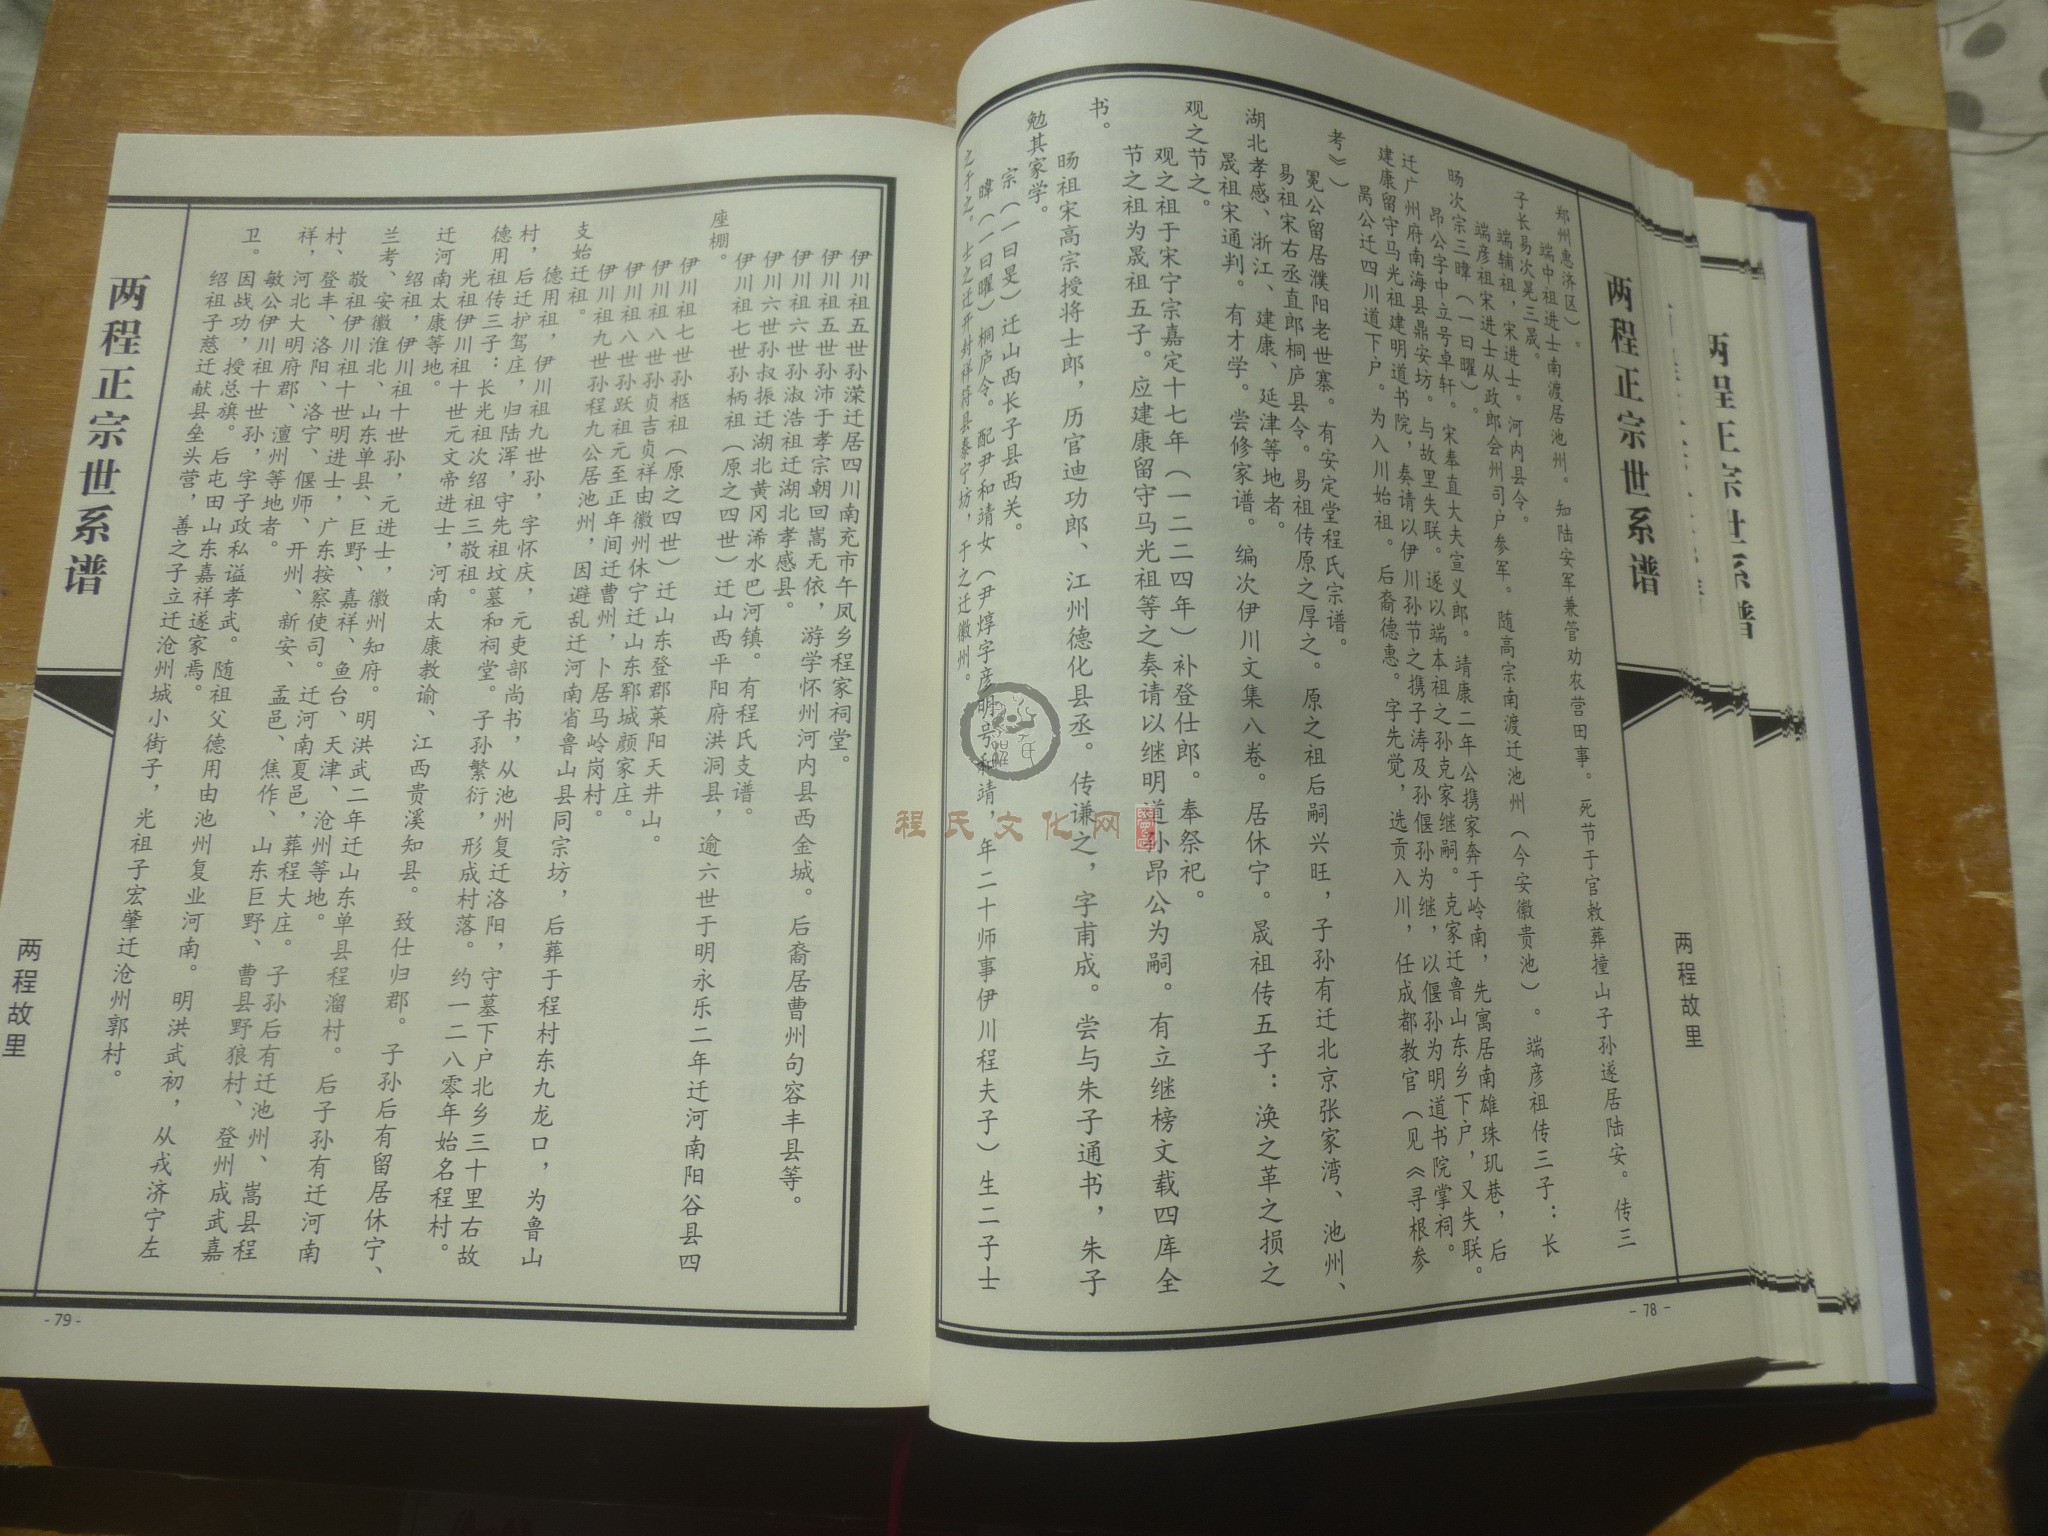 两程正宗世系谱
两程故里
- 78 -
郑州惠济区）。
端中祖进士南渡居池州。知陆安军兼管劝农营田事。死节于官敕葬撞山子孙遂居陆安。传三
子长易次晃三晟。
端辅祖，宋进士。河内县令。
端彦祖宋进士从政郎会州司户参军。随高宗南渡迁池州（今安徽贵池）。端彦祖传三子：长
旸次宗三暐（一曰曜）。
昂公字中立号卓轩。宋奉直大夫宣义郎。靖康二年公携家奔于岭南，先寓居南雄珠玑巷，后
迁广州府南海县鼎安坊。与故里失联。遂以端本祖之孙克家继嗣。克家迁鲁山东乡下户，又失联。
建康留守马光祖建明道书院，奏请以伊川孙节之携子涛及孙偃孙为继，以偃孙为明道书院掌祠。
昺公迁四川道下户。为入川始祖。后裔德惠。字先觉，选贡入川，任成都教官（见《寻根参
考》）
冕公留居濮阳老世寨。有安定堂程氏宗谱。
易祖宋右丞直郎桐庐县令。易祖传原之厚之。原之祖后嗣兴旺，子孙有迁北京张家湾、池州、
湖北孝感、浙江、建康、延津等地者。
晟祖宋通判。有才学。尝修家谱。编次伊川文集八卷。居休宁。晟祖传五子：涣之革之损之
观之节之。
观之祖于宋宁宗嘉定十七年（一二二四年）补登仕郎。奉祭祀。
节之祖为晟祖五子。应建康留守马光祖等之奏请以继明道孙昂公为嗣。有立继榜文载四库全
书。
旸祖宋高宗授将士郎，历官迪功郎、江州德化县丞。传谦之，字甫成。尝与朱子通书，朱子
勉其家学。
宗（一曰旻）迁山西长子县西关。
暐（一曰曜）桐庐令。配尹和靖女（尹焞字彦明号和靖，年二十师事伊川程夫子）生二子士
之于之。士之迁开封祥符县泰宁坊，于之迁徽州。
伊川祖五世孙溁迁居四川南充市午凤乡程家祠堂。
伊川祖五世孙沛于孝宗朝回嵩无依，游学怀州河内县西金城。后裔居曹州句容丰县等。
伊川祖六世孙淑浩祖迁湖北孝感县。
伊川六世孙叔振迁湖北黄冈浠水巴河镇。有程氏支谱。
伊川祖七世孙柄祖（原之四世）迁山西平阳府洪洞县，逾六世于明永乐二年迁河南阳谷县四
座棚。
伊川祖七世孙柩祖（原之四世）迁山东登郡莱阳天井山。
伊川祖八世孙贞吉贞祥由徽州休宁迁山东郓城颜家庄。
伊川祖八世孙跃祖元至正年间迁曹州，卜居马岭岗村。
伊川祖九世孙程九公居池州，因避乱迁河南省鲁山县同宗坊，后葬于程村东九龙口，为鲁山
支始迁祖。
德用祖，伊川祖九世孙，字怀庆，元吏部尚书，从池州复迁洛阳，守墓下户北乡三十里右故
村，后迁护驾庄，归陆浑，守先祖坟墓和祠堂。子孙繁衍，形成村落。约一二八零年始名程村。
德用祖传三子：长光祖次绍祖三敬祖。
光祖伊川祖十世元文帝进士，河南太康教谕、江西贵溪知县。致仕归郡。子孙后有留居休宁、
迁河南太康等地。
绍祖，伊川祖十世孙，元进士，徽州知府。明洪武二年迁山东单县程溜村。后子孙有迁河南
兰考、安徽淮北、山东单县、巨野、嘉祥、鱼台、天津、沧州等地。
敬祖伊川祖十世明进士，广东按察使司。迁河南夏邑，葬程大庄。子孙后有迁池州、嵩县程
村、登丰、洛阳、洛宁、偃师、开州、新安、孟邑、焦作、山东巨野、曹县野狼村、登州成武嘉
祥，河北大明府郡、澶州等地者。
敏公伊川祖十世孙，字子政私谥孝武。随祖父德用由池州复业河南。明洪武初，从戎济宁左
卫。因战功，授总旗。后屯田山东嘉祥遂家焉。
绍祖子慈迁献县垒头营，善之子立迁沧州城小街子，光祖子宏肇迁沧州郭村。
两程正宗世系谱
两程故里
- 79 -
程氏文化网